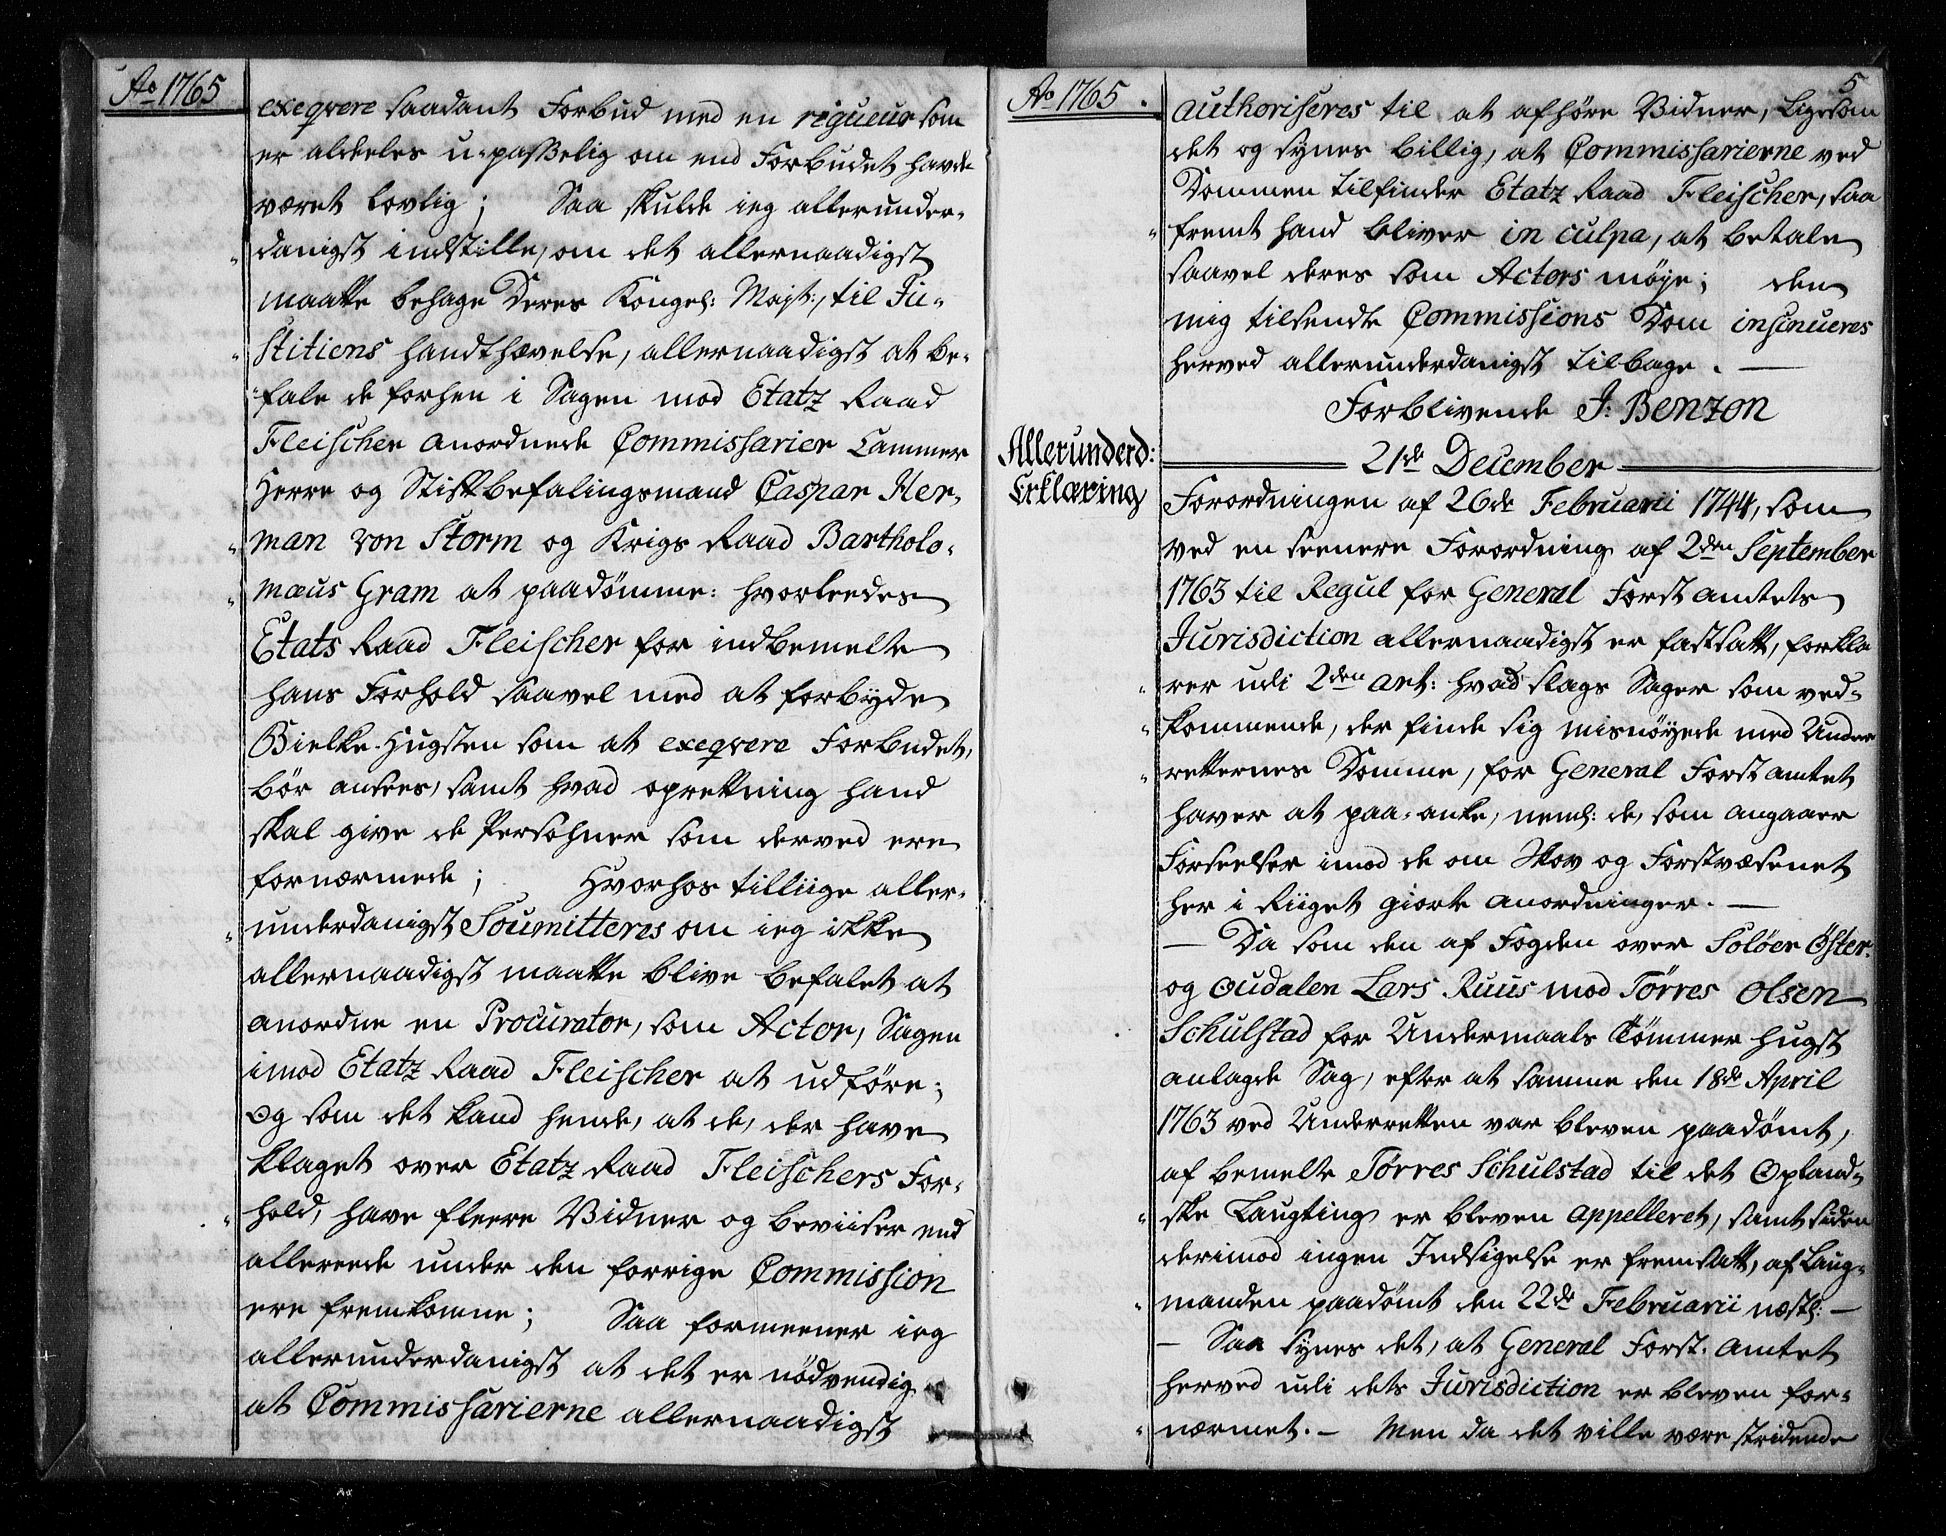 Ao 1765
exeqvere saadant Forbud med en rigueur som
er aldeles u-passelig om end Forbudet havde
været lovlig; Saa skulde ieg allerunder-
danigst indstille, om det allernaadigst
maatte behage Deres Kongel: Majt:, til Ju-
stitiens handthævelse, allernaadigst at be-
fale de forhen i Sagen mod Etatz Raad
Fleischer anordnede Commissarier Cammer
Herre og Stiftbefalingsmand Caspar Her-
man von Storm og Krigs Raad Bartholo-
mæus Gram at paadømme: hvorledes
Etats Raad Fleischer for indbemelte
hans Forhold saavel med at forbyde
Bielke-Hugsten som at exeqvere Forbudet,
bør ansees, samt hvad oprettning hand
skal give de Persohner som derved ere
fornærmede; Hvorhos tilliige aller-
underdanigst Soumitteres om ieg ikke
allernaadigst maatte blive befalet at
anordne en Procurator, som Actor, Sagen
imod Etatz Raad Fleischer at udføre;
Og som det kand hende, at de, der have
klaget over Etatz Raad Fleischers For-
hold, have fleere Vidner og beviiser end
allereede under den forrige Commission
ere fremkomne; Saa formeener ieg
allerunderdanigst at det er nödvendig
at Commissarierne allernaadigst
Ao 1765.
5
authoriseres til at afhøre Vidner, Ligesom
det og synes billig, at Commissarierne ved
Dommen tilfinder Etatz Raad Fleischer, saa
fremt hand bliver in culpa, at betale
saavel deres som Actors møje; den
mig tilsendte Commissions Dom insinueres
herved allerunderdanigst tilbage. —
Forblivende J: Benzon
21de December
Allerunderd:
Erklæring
Forordningen af 26de Februarii 1744, som
ved en seenere Forordning af 2den September
1763 til Regul for General Forst amtets
Jurisdiction allernaadigst er fastsatt, forkla
rer udi 2den art: hvad slags Sager som ved-
kommende, der finde sig misnøyede med Under
retternes Domme, for General Forst amtet
haver at paa-anke, neml: de, som angaaer
Forseelser imod de om Skov og Forstvæsenet
her i Riiget giorte anordninger. —
— Da som den af Fogden over Soløer Øster-
og Oudalen Lars Ruus mod Tørres Olsen
Schulstad for Undermaals Tømmer hugst
anlagde Sag, efter at samme den 18de April
1763 ved Underretten var bleven paadømt,
af bemelte Tørres Schulstad til det Opland-
ske Laugting er bleven appelleret, samt siden
derimod ingen Indsigelse er fremsatt, af Laug-
manden paadømt den 22de Februarii næstl: —
— Saa synes det, at General Forst-amtet
herved udi dets Jurisdiction er bleven for-
nærmet. — Men da det ville være stridende